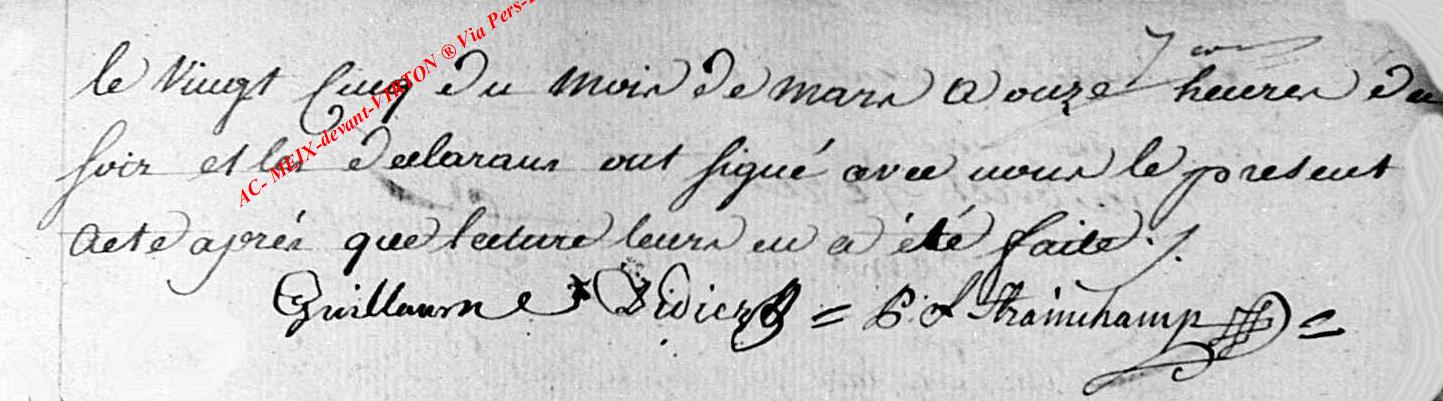 le Vingt Cinq du mois de mars a onze heures du
soir et les declarans ont signé avec nous le present
acte aprés que lecture leurs en a été faite ./.
Guillaume Didier = P. J. Frainchamp =
AC- MEIX-devant-VIRTON ® Via Pers-